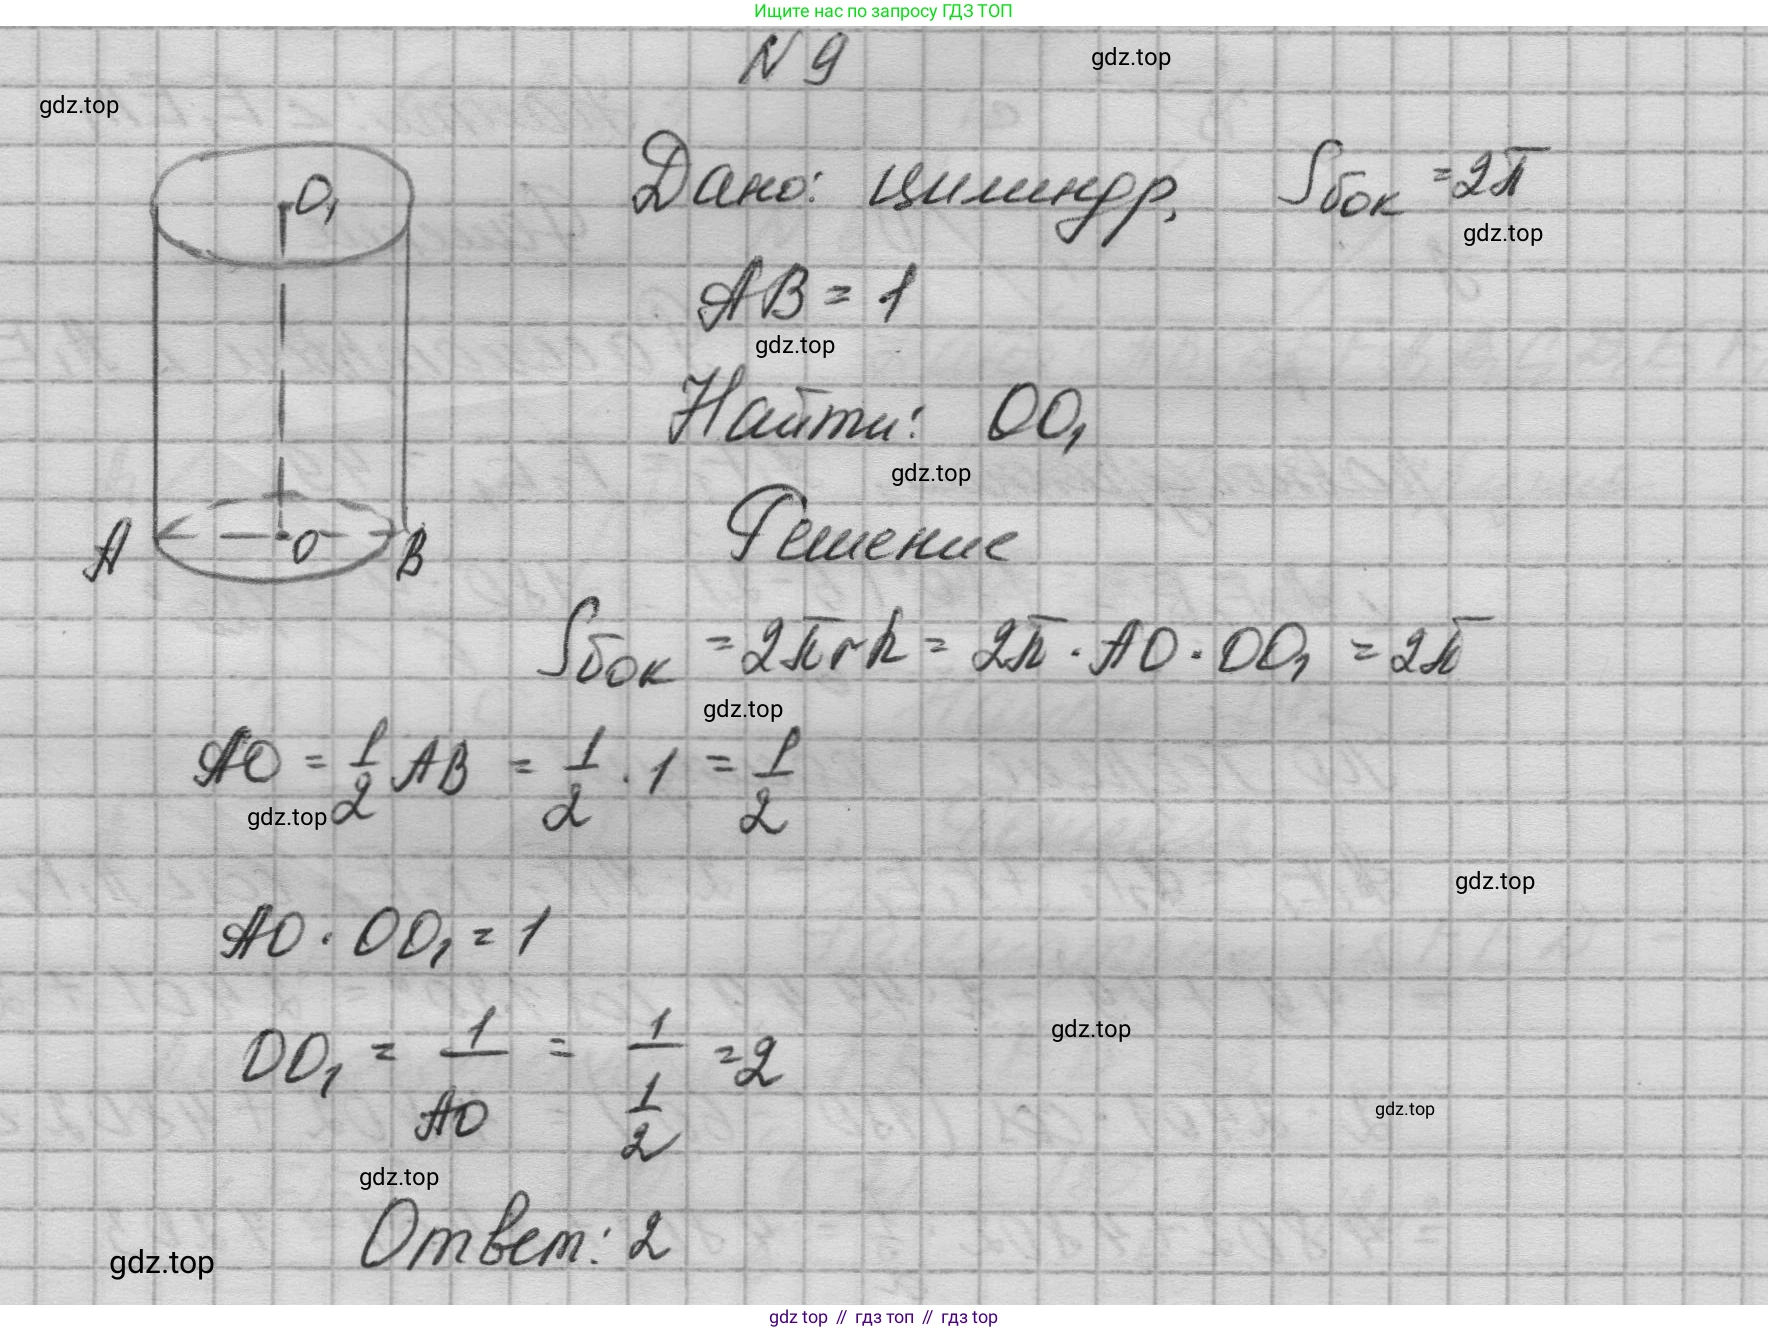 Ищите нас по запросу ГДЗ ТОП
N 9
gdz.top
gdz.top
O₁
Дано: цилиндр, Sбок = 2π
gdz.top
AB = 1
gdz.top
Найти: OO₁
gdz.top
A O B
Решение
Sбок = 2πrh = 2π · AO · OO₁ = 2π
gdz.top
AO = 1/2 AB = 1/2 · 1 = 1/2
gdz.top
gdz.top
AO · OO₁ = 1
gdz.top
OO₁ = 1/AO = 1/(1/2) = 2
gdz.top
gdz.top
Ответ: 2
gdz.top
gdz top // гдз топ // gdz top